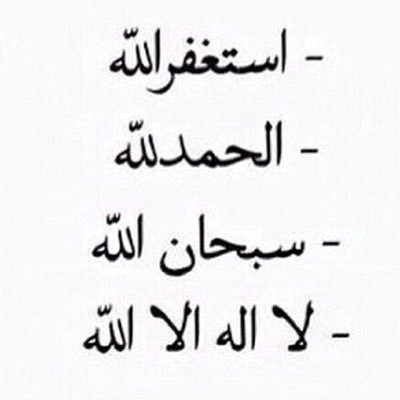 - استغفرالله
- الحمدلله
- سبحان الله
- لا اله الا الله